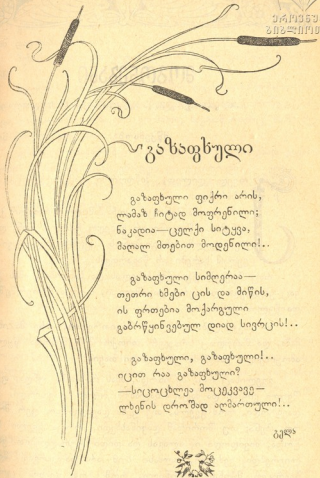 ეროვნული
გაზაფხული
გაზაფხული ფიქრი არის,
ლამაზ ჩიტად მოფრენილი;
ნაკადია—ცელქი სიტყვა,
მაღალ მთებით მოდენილი!..
გაზაფხული სიმღერაა—
თეთრი ხმები ცის და მიწის,
ის ფრთებია მოქარგული
გაბრწყინვებულ დიად სივრცის!..
გაზაფხული, გაზაფხული!..
იცით რაა გაზაფხული?
—სიცოცხლეა მოცეკვავე—
ლხენის დროშად აღმართული!..